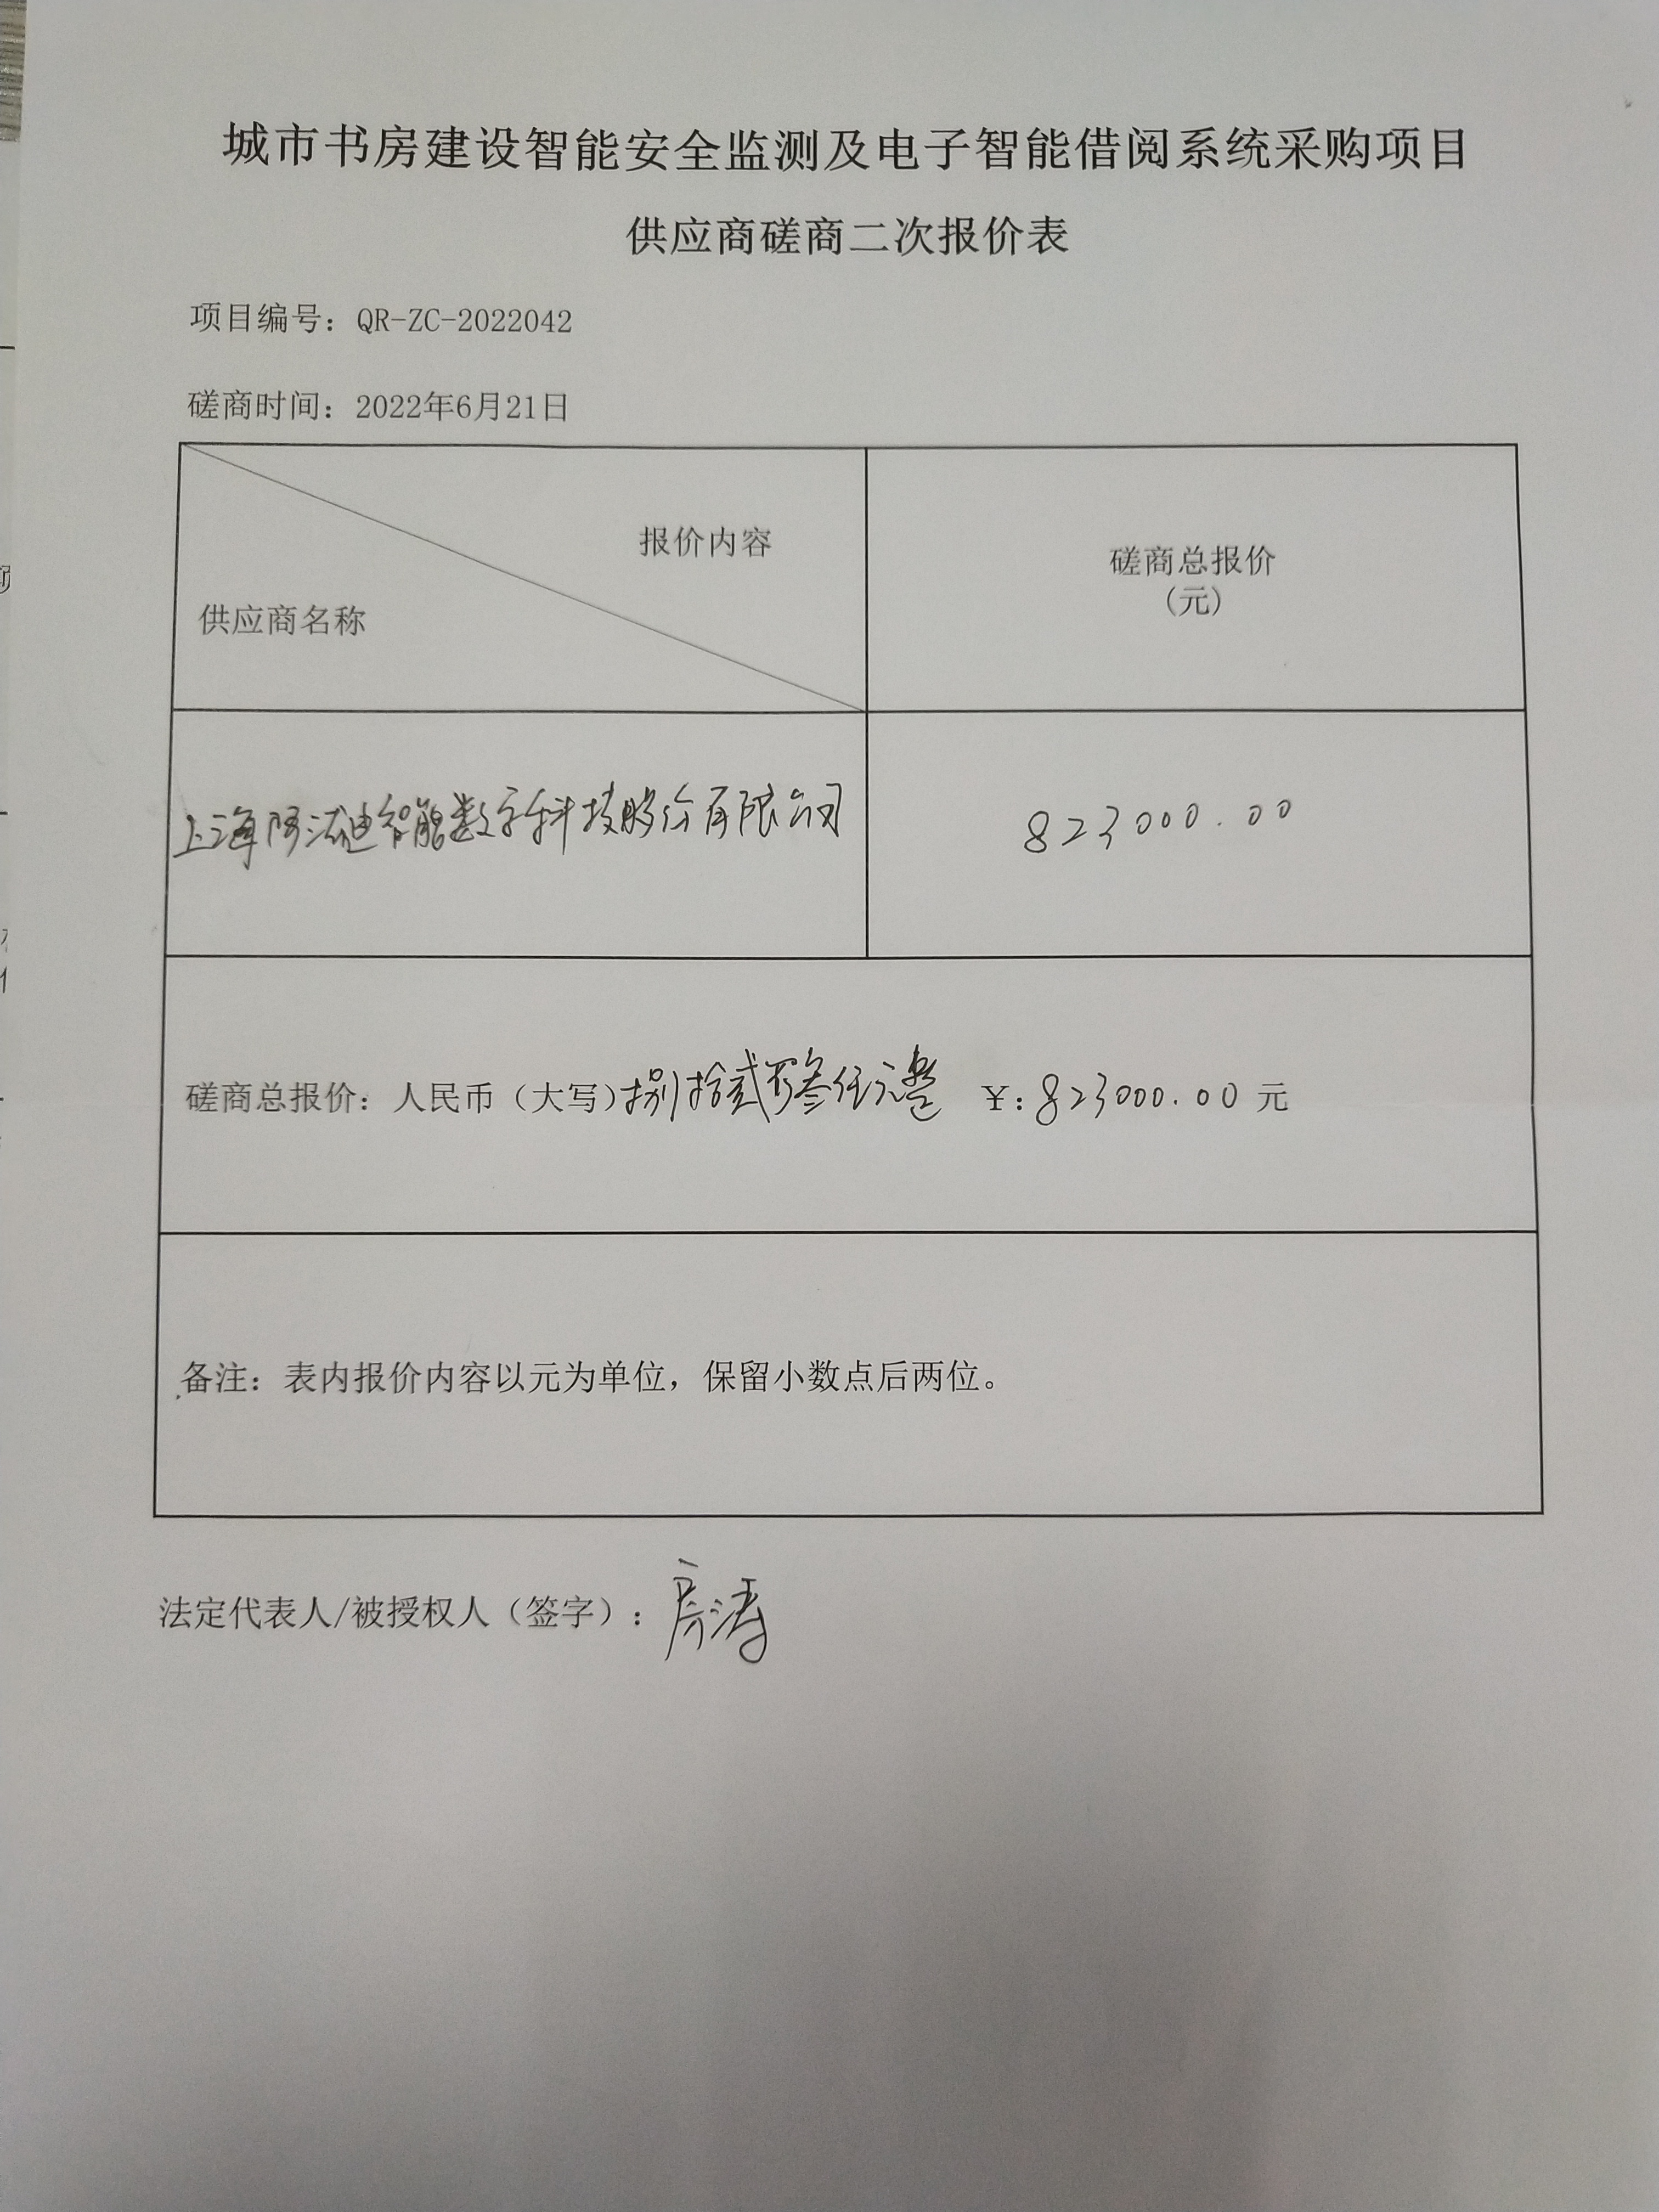 城市书房建设智能安全监测及电子智能借阅系统采购项目
供应商磋商二次报价表
项目编号：QR-ZC-2022042
磋商时间：2022年6月21日
报价内容
供应商名称
磋商总报价
(元)
上海阿法迪智能数字科技股份有限公司
823000.00
磋商总报价：人民币（大写）捌拾贰万叁仟元整 ¥：823000.00 元
备注：表内报价内容以元为单位，保留小数点后两位。
法定代表人/被授权人（签字）：房涛